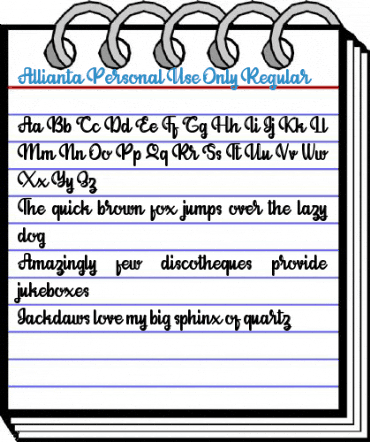 Allianta Personal Use Only Regular
Aa Bb Cc Dd Ee Ff Gg Hh Ii Jj Kk Ll
Mm Nn Oo Pp Qq Rr Ss Tt Uu Vv Ww
Xx Yy Zz
The quick brown fox jumps over the lazy
dog
Amazingly few discotheques provide
jukeboxes
Jackdaws love my big sphinx of quartz